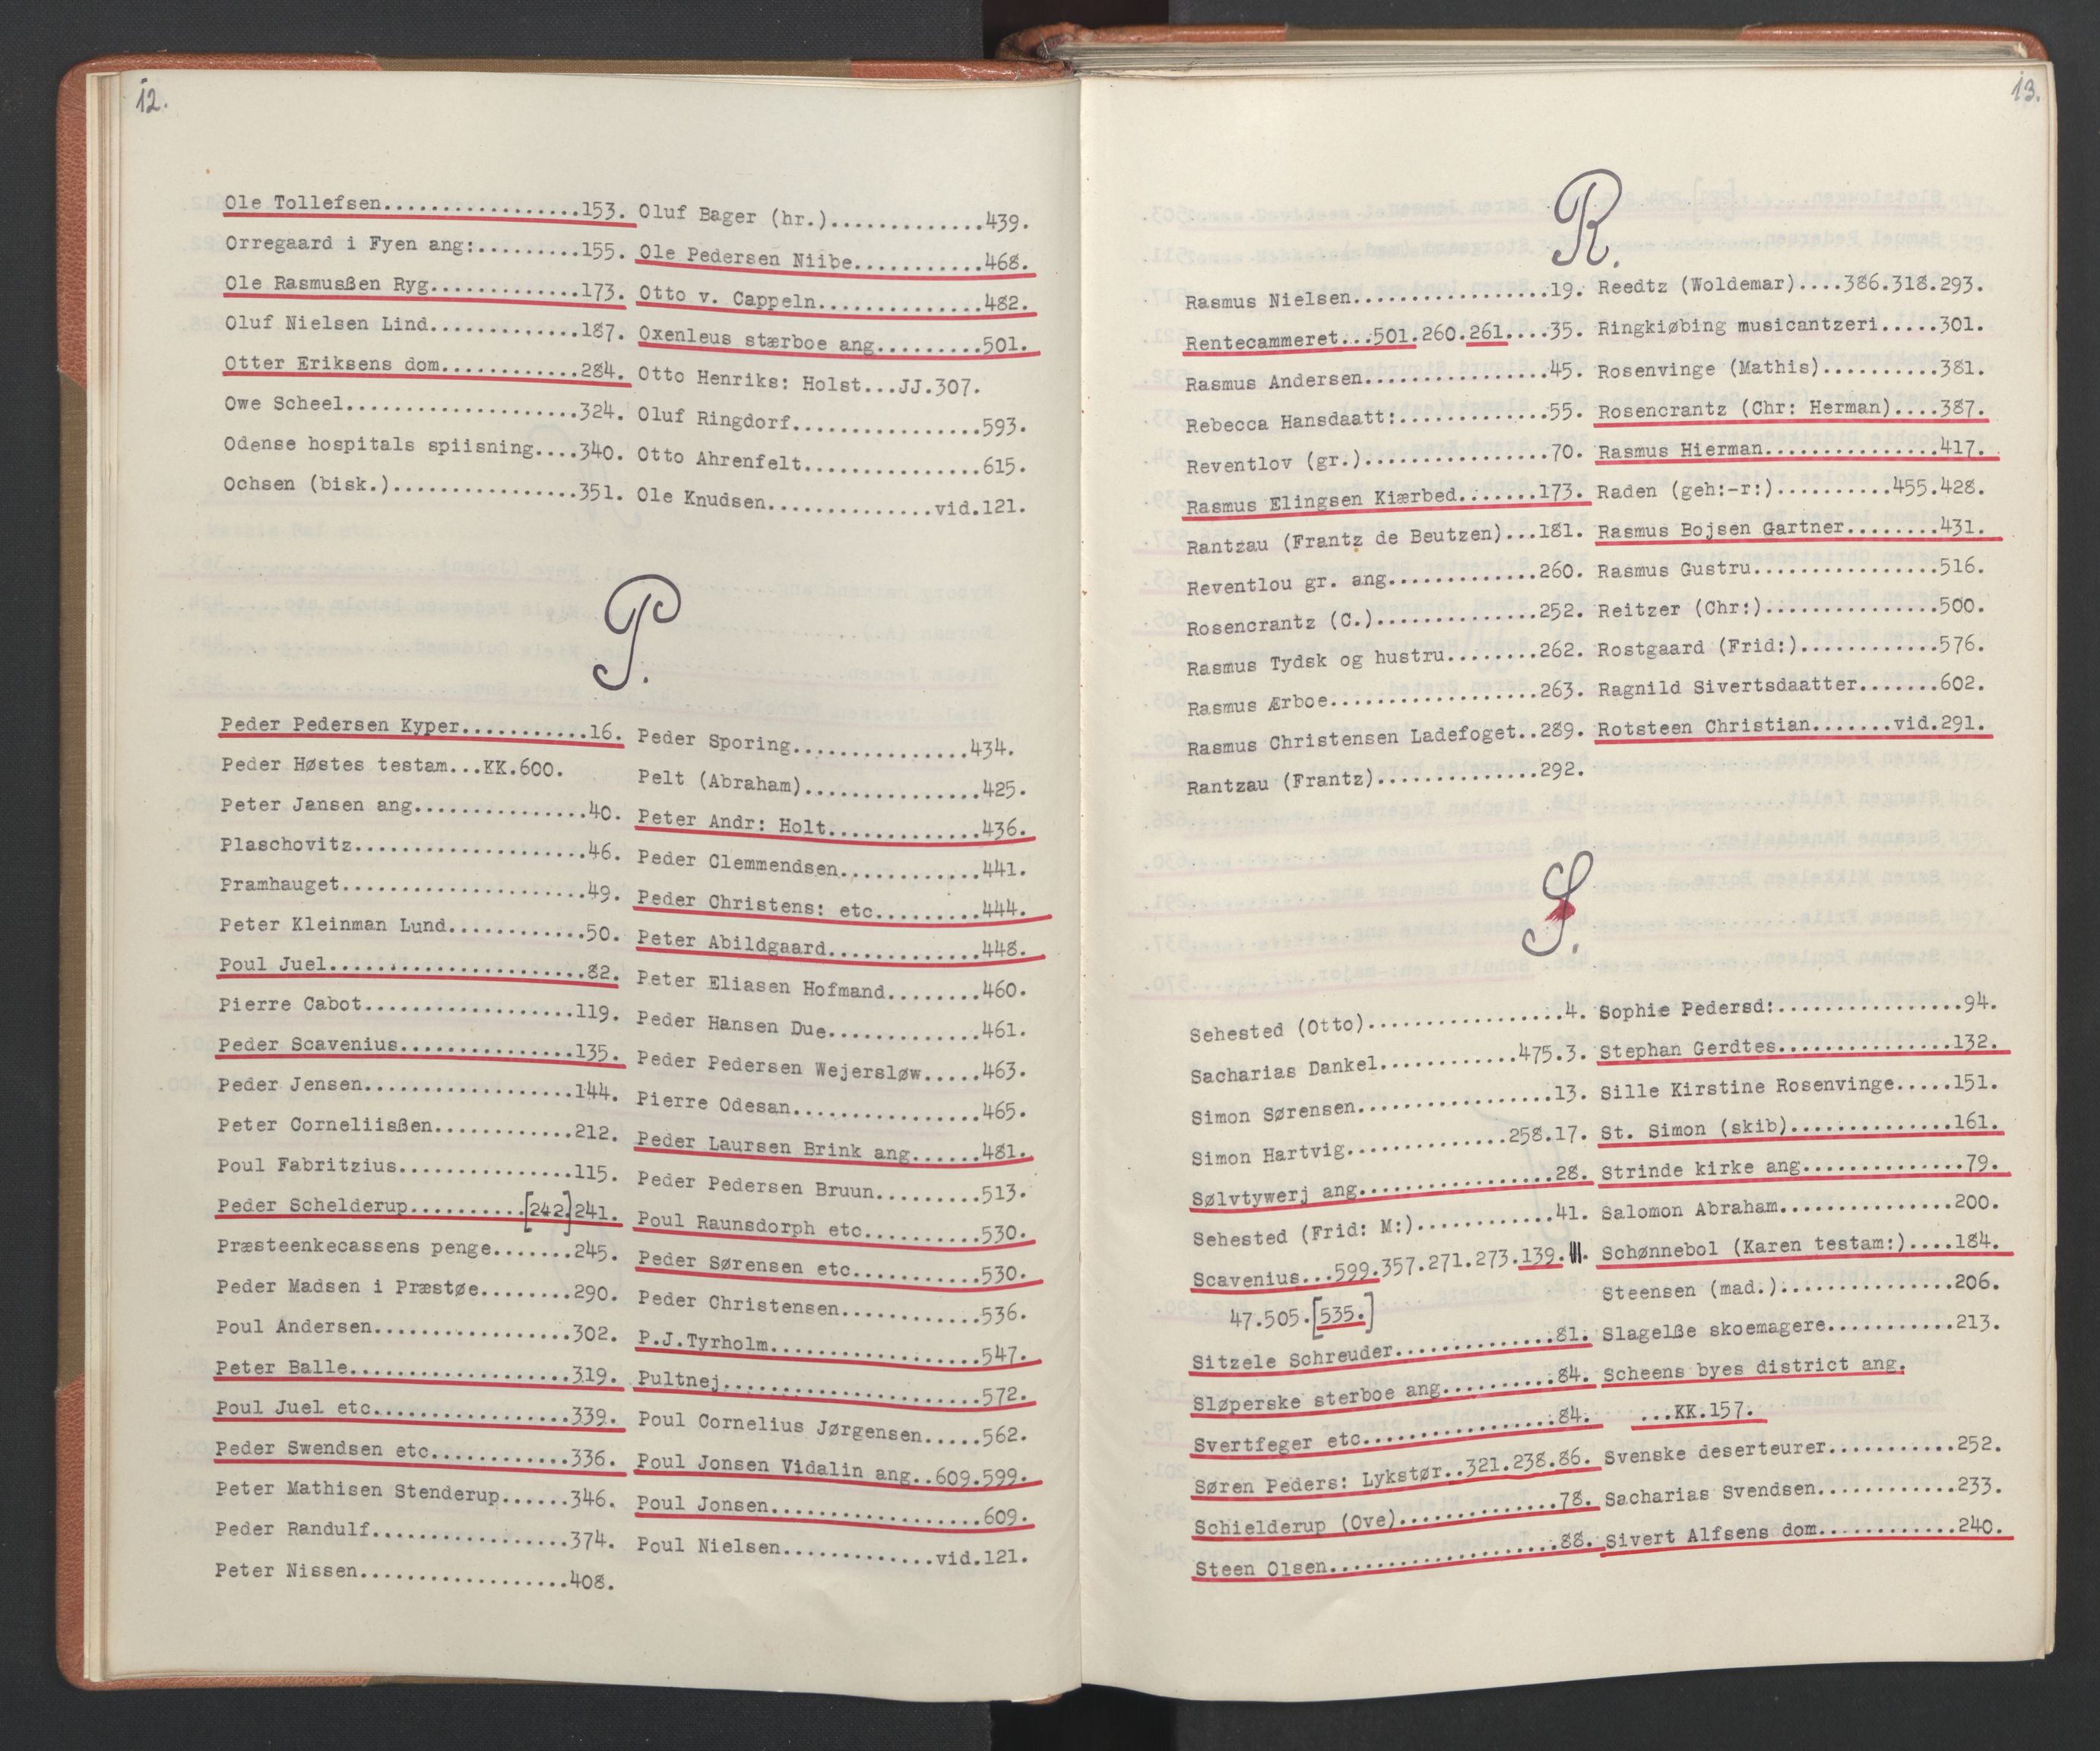 12.
Ole Tollefsen.................153.
Orregaard i Fyen ang:.........155.
Ole Rasmusßen Ryg.............173.
Oluf Nielsen Lind.............187.
Otter Eriksens dom............284.
Owe Scheel....................324.
Odense hospitals spiisning....340.
Ochsen (bisk.)................351.
Oluf Bager (hr.).............439.
Ole Pedersen Niibe...........468.
Otto v. Cappeln..............482.
Oxenleus stærboe ang.........501.
Otto Henriks: Holst...JJ.307.
Oluf Ringdorf................593.
Otto Ahrenfelt...............615.
Ole Knudsen..............vid.121.
P.
Peder Pedersen Kyper...........16.
Peder Høstes testam...KK.600.
Peter Jansen ang...............40.
Plaschovitz....................46.
Pramhauget.....................49.
Peter Kleinman Lund............50.
Poul Juel......................82.
Pierre Cabot..................119.
Peder Scavenius...............135.
Peder Jensen..................144.
Peter Corneliisßen............212.
Poul Fabritzius...............115.
Peder Schelderup..........[242.]241.
Præsteenkecassens penge.......245.
Peder Madsen i Præstøe........290.
Poul Andersen.................302.
Peter Balle...................319.
Poul Juel etc.................339.
Peder Swendsen etc............336.
Peter Mathisen Stenderup......346.
Peder Randulf.................374.
Peter Nissen..................408.
Peder Sporing...............434.
Pelt (Abraham)...............425.
Peter Andr: Holt.............436.
Peder Clemmendsen............441.
Peder Christens: etc.........444.
Peter Abildgaard.............448.
Peter Eliasen Hofmand........460.
Peder Hansen Due.............461.
Peder Pedersen Wejersløw.....463.
Pierre Odesan................465.
Peder Laursen Brink ang......481.
Peder Pedersen Bruun.........513.
Poul Raunsdorph etc..........530.
Peder Sørensen etc...........530.
Peder Christensen............536.
P.J.Tyrholm..................547.
Pultnej......................572.
Poul Cornelius Jørgensen.....562.
Poul Jonsen Vidalin ang..609.599.
Poul Jonsen..................609.
Poul Nielsen.............vid.121.
13.
R.
Rasmus Nielsen.................19.
Rentecammeret...501.260.261....35.
Rasmus Andersen................45.
Rebecca Hansdaatt:.............55.
Reventlov (gr.)................70.
Rasmus Elingsen Kiærbed.......173.
Rantzau (Frantz de Beutzen)...181.
Reventlou gr. ang.............260.
Rosencrantz (C.)..............252.
Rasmus Tydsk og hustru........262.
Rasmus Ærboe..................263.
Rasmus Christensen Ladefoget..289.
Rantzau (Frantz)..............292.
Reedtz (Woldemar)....386.318.293.
Ringkiøbing musicantzeri.....301.
Rosenvinge (Mathis)..........381.
Rosencrantz (Chr: Herman)....387.
Rasmus Hierman...............417.
Raden (geh:-r:)..........455.428.
Rasmus Bojsen Gartner........431.
Rasmus Gustru................516.
Reitzer (Chr:)...............500.
Rostgaard (Frid:)............576.
Ragnild Sivertsdaatter.......602.
Rotsteen Christian.......vid.291.
S.
Sehested (Otto).................4.
Sacharias Dankel............475.3.
Simon Sørensen.................13.
Simon Hartvig..............258.17.
Sølvtywerj ang.................28.
Sehested (Frid: M:)............41.
Scavenius...599.357.271.273.139.
47.505.[535.]
Sitzele Schreuder..............81.
Sløperske sterboe ang..........84.
Svertfeger etc.................84.
Søren Peders: Lykstør..321.238.86.
Schielderup (Ove)..............78.
Steen Olsen....................88.
Sophie Pedersd:................94.
Stephan Gerdtes...............132.
Sille Kirstine Rosenvinge.....151.
St. Simon (skib)..............161.
Strinde kirke ang..............79.
Salomon Abraham...............200.
Schønnebol (Karen testam:)....184.
Steensen (mad.)...............206.
Slagelße skoemagere...........213.
Scheens byes district ang.
...KK.157.
Svenske deserteurer...........252.
Sacharias Svendsen............233.
Sivert Alfsens dom............240.